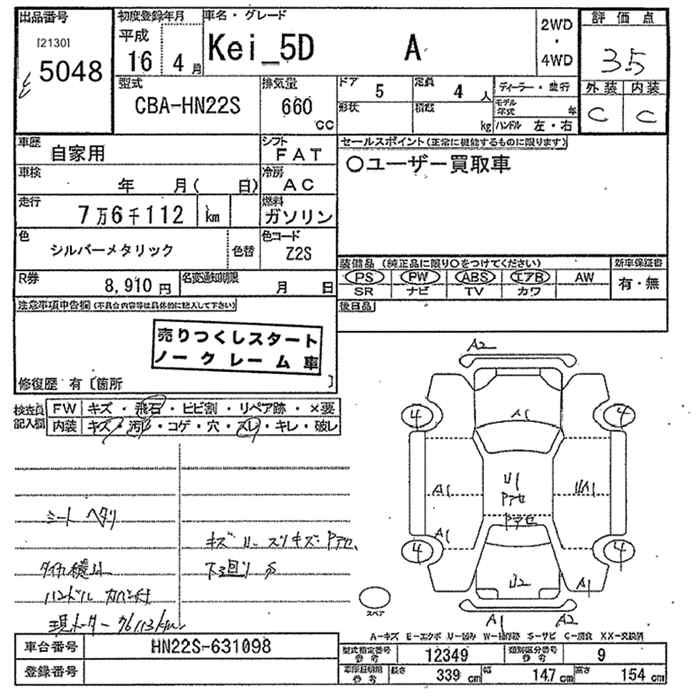 出品番号
[2130]
5048
初度登録年月
平成
16 4月
車名・グレード
Kei_5D A
2WD
・
4WD
評価点
3.5
外装 内装
C C
型式
CBA-HN22S
排気量
660
cc
ドア 5
形状
定員 4 人
積載 kg
ディーラー・並行
モデル年式 年
ハンドル 左・右
車歴
自家用
シフト
FAT
セールスポイント(正常に機能するものに限ります)
○ユーザー買取車
車検
年 月( 日)
冷房
AC
走行
7万6千112 km
燃料
ガソリン
色
シルバーメタリック
色替
色コード
Z2S
装備品 (純正品に限り○をつけてください)
PS PW ABS エアB AW
SR ナビ TV カワ
新車保証書
有・無
R券
8,910円
名変通知期限
月 日
後日品
注意事項申告欄(不具合内容等は具体的に記入して下さい)
売りつくしスタート
ノークレーム車
修復歴 有〔箇所 〕
検査員
記入欄
FW キズ・飛石・ヒビ割・リペア跡・×要
内装 キズ・汚れ・コゲ・穴・スレ・キレ・破レ
A2
A1
4 4
A1
U1
アセ
UA1
A1
アセ
4 4
U2
A1
A1 A2
スペア
シート ヘタリ
キズ U- スリキズ アセ
下廻り サ
ハンドル カバー付
現メーター 76113km
A-キズ E-エクボ U-凹み W-補修跡 S-サビ C-腐食 XX-交換済
車台番号 HN22S-631098
登録番号
型式指定番号
参考
12349
類別区分番号
参考
9
車庫証明用
参考
長さ 339 cm 幅 147 cm 高さ 154 cm